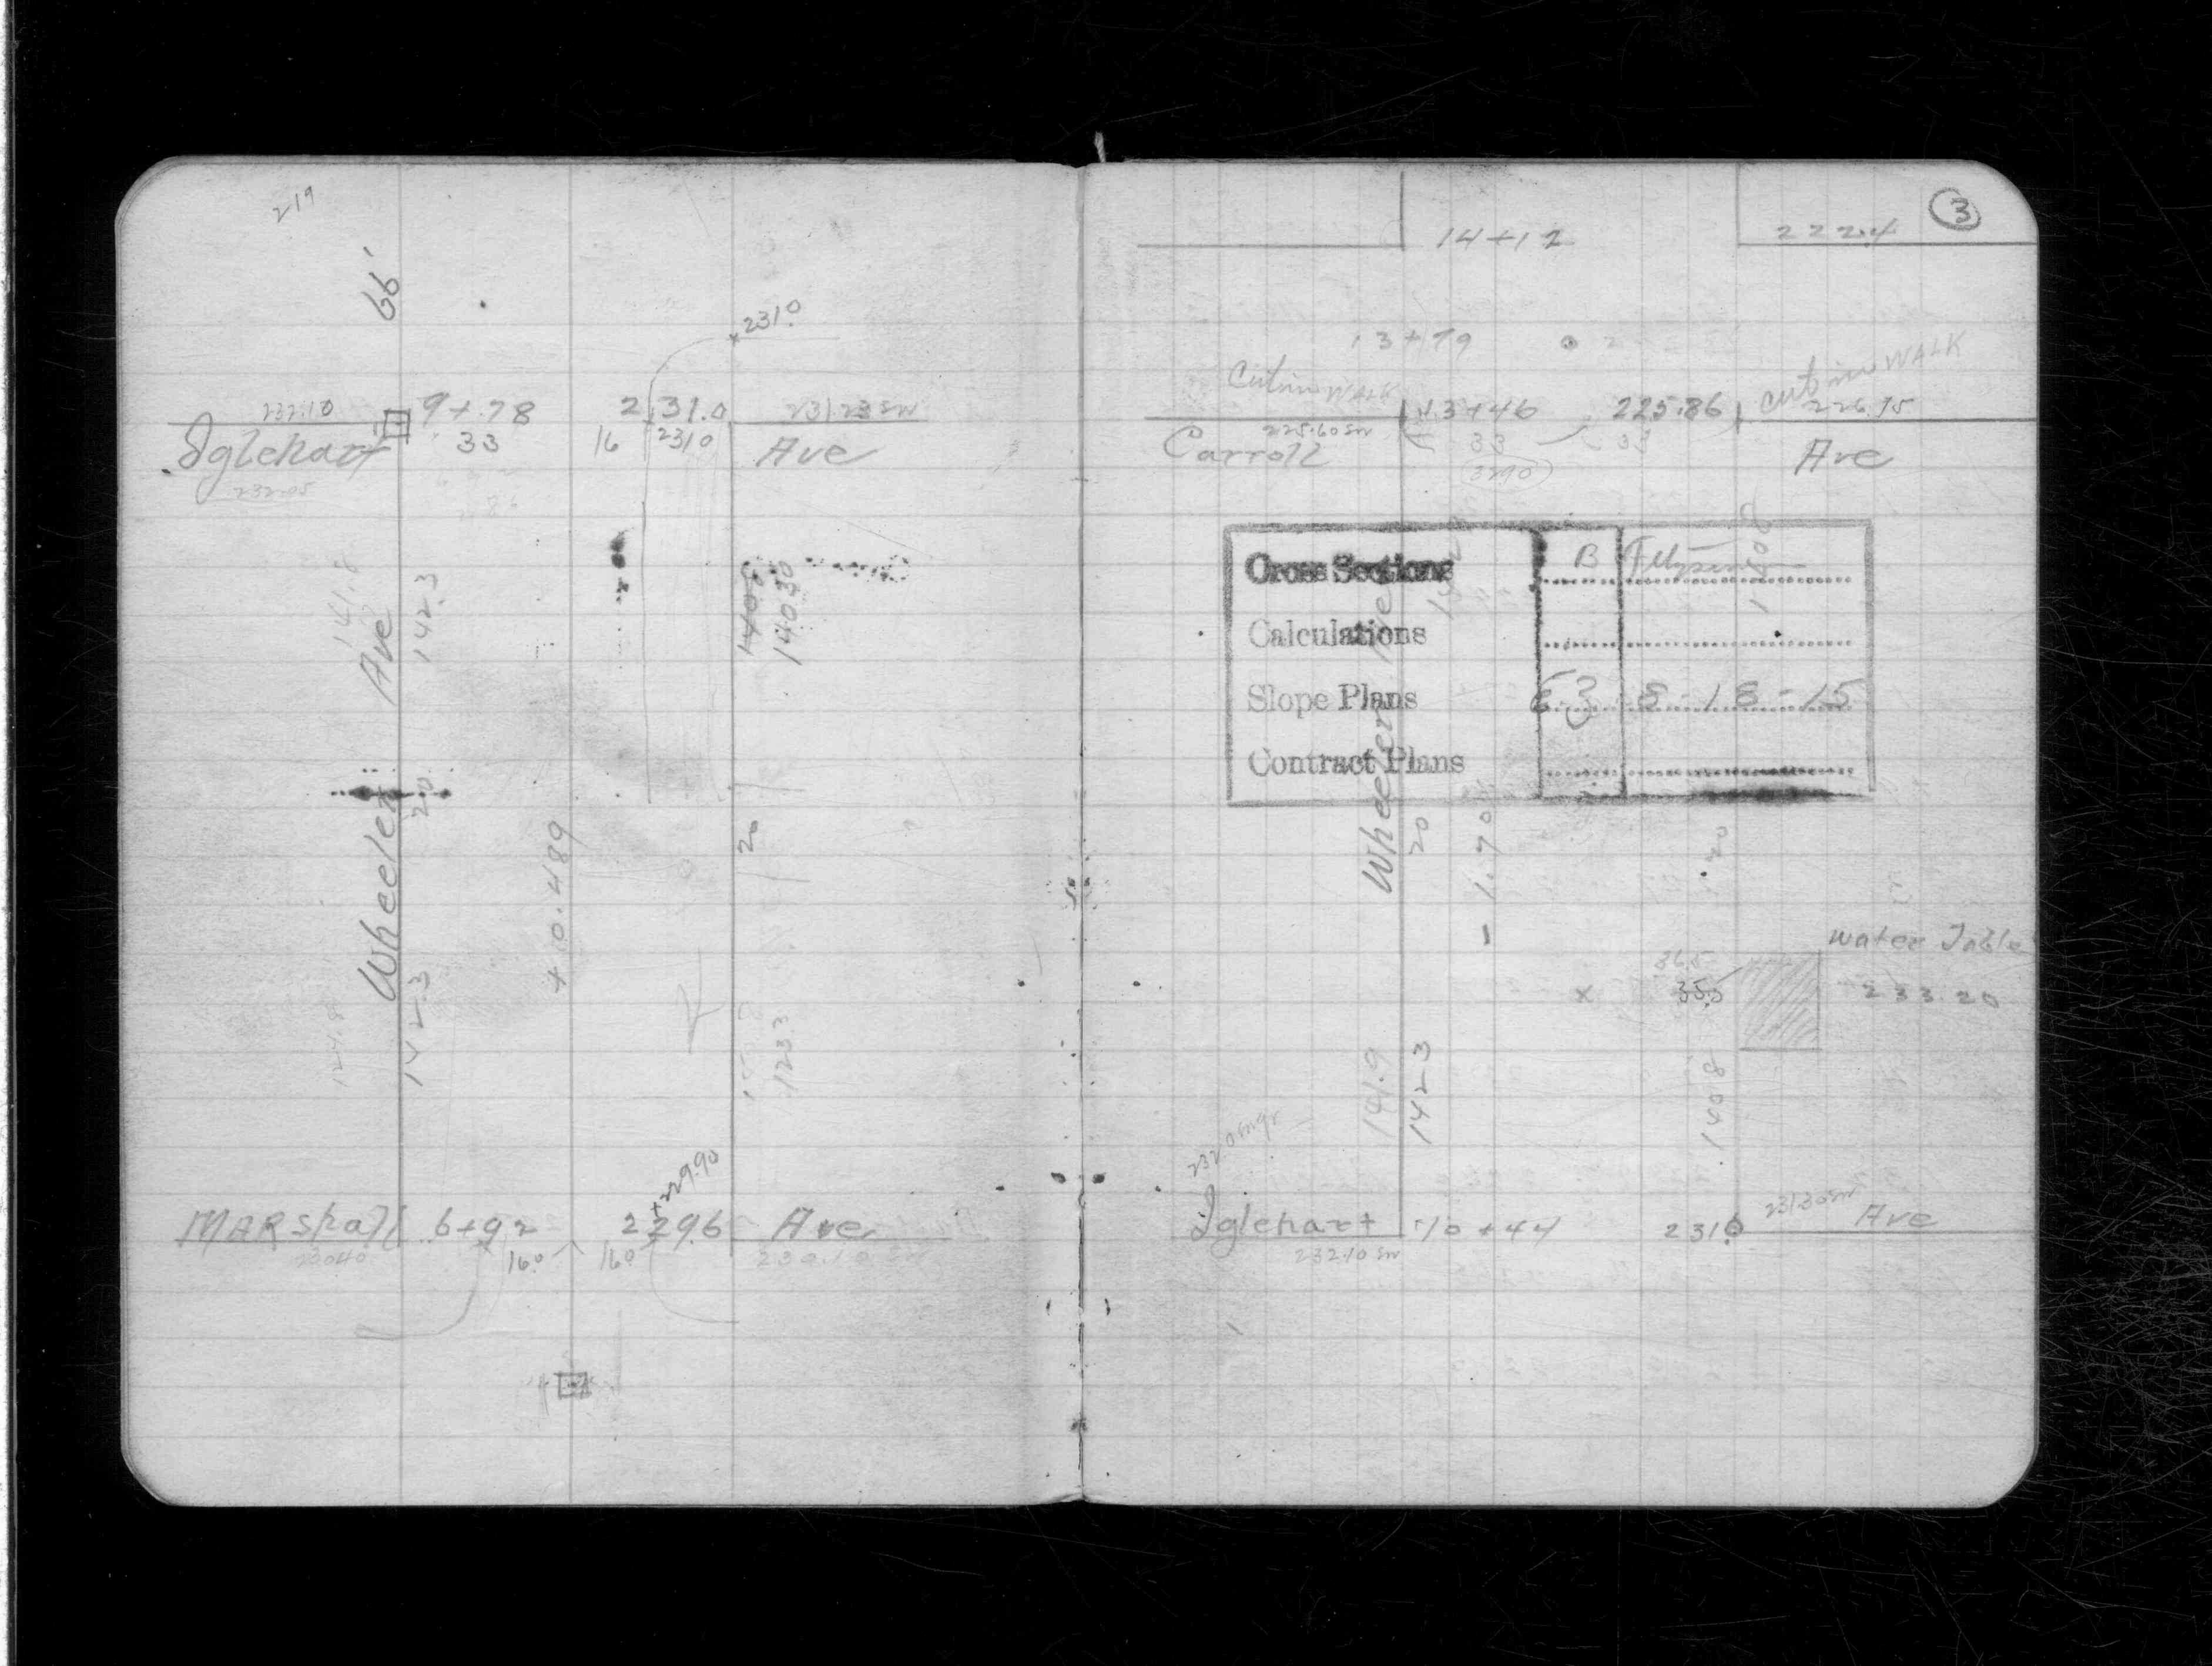 219
66'
2310
232.10
9+78
231.0
231.23 SW
Iglehart
33
16
2310
Ave
232.05
141.8
142.3
140.8
140.30
Wheeler Ave
20
20
+0.489
124.8
142.3
123.3
+229.90
MARshall
6+92
229.6
Ave
230.40
16.0
16.0
230.10 SW
3
14+12
222.4
13+79
Cut in WALK
Cut in WALK
13+46
225.86
226.15
Carroll
225.60 SW
33
33
Ave
32.70
Cross Sections
B
Calculations
Slope Plans
8-18-15
Contract Plans
140.8
Wheeler Ave
20
-1.70
20
Water Table
36.5
35.5
x
233.20
141.9
142.3
140.8
Iglehart
10+44
231.0
231.30 SW
Ave
232.10 SW